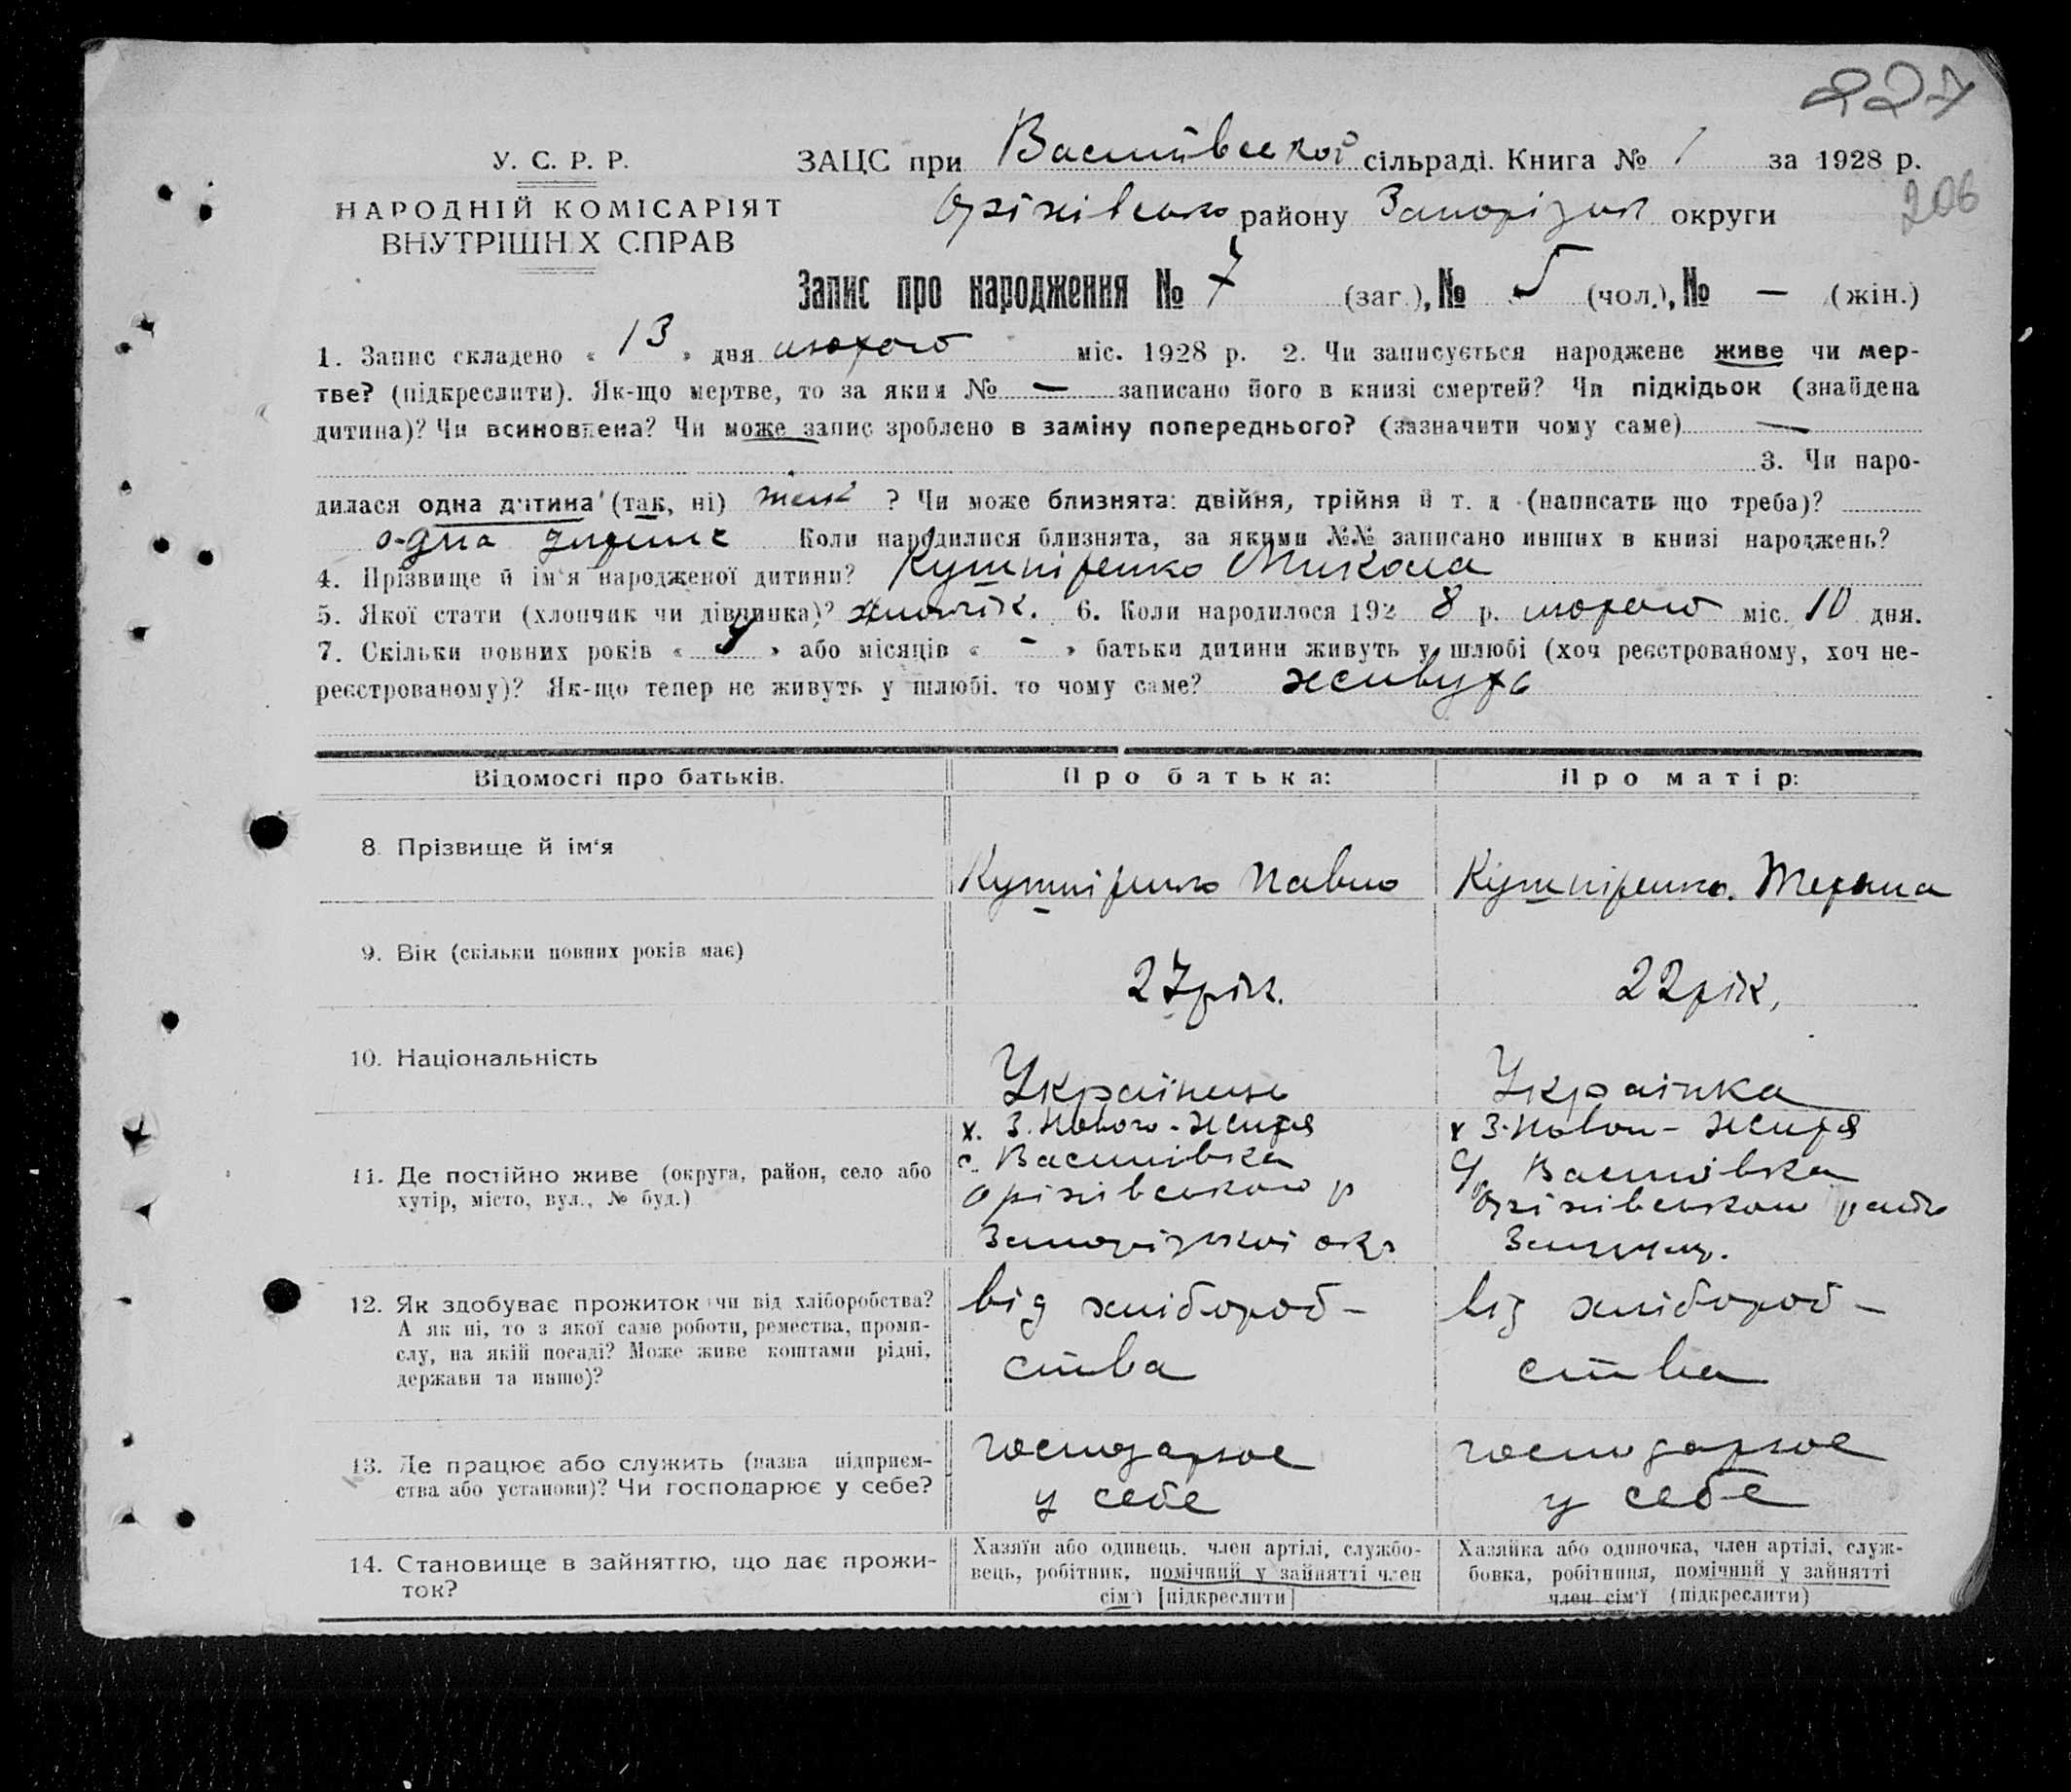 227
У. С. Р. Р.
НАРОДНІЙ КОМІСАРІЯТ
ВНУТРІШНІХ СПРАВ
ЗАЦС при Василівській сільраді. Книга № 1 за 1928 р.
Оріхівсько району Запорізьк округи
206
Запис про народження № 7 (заг.), № 5 (чол.), № — (жін.)
1. Запис складено « 13 » дня лютого міс. 1928 р. 2. Чи записується народжене живе чи мер-
тве? (підкреслити). Як-що мертве, то за яким № — записано його в книзі смертей? Чи підкідьок (знайдена
дитина)? Чи всиновлена? Чи може запис зроблено в заміну попереднього? (зазначити чому саме) —
3. Чи наро-
дилася одна дитина (так, ні) так ? Чи може близнята: двійня, трійня й т. д (написати що треба)?
одна дитина Коли народилися близнята, за якими №№ записано инших в книзі народжень?
4. Прізвище й ім'я народженої дитини? Кушніренко Микола
5. Якої стати (хлопчик чи дівчинка)? хлопчік. 6. Коли народилося 192 8 р. лютого міс. 10 дня.
7. Скільки повних років « » або місяців « - » батьки дитини живуть у шлюбі (хоч реєстрованому, хоч не-
реєстрованому)? Як-що тепер не живуть у шлюбі, то чому саме? живуть
Відомості про батьків.
Про батька:
Про матір:
8. Прізвище й ім'я
Кушніренко Павло
Кушніренко. Тетяна
9. Вік (скільки повних років має)
27 рік.
22 рік,
10. Національність
Українець
Українка
11. Де постійно живе (округа, район, село або
хутір, місто, вул., № буд.)
х. З. Нового-Життя
с. Василівка
Оріхівського р
Запорізької окр
х З. Нового-Життя
Василівка
Оріхівського
12. Як здобуває прожиток чи від хліборобства?
А як ні, то з якої саме роботи, ремества, проми-
слу, на якій посаді? Може живе коштами рідні,
держави та инше)?
від хлібороб-
ства
від хлібороб-
ства
13. Де працює або служить (назва підприєм-
ства або установи)? Чи господарює у себе?
господарює
у себе
господарює
у себе
14. Становище в зайняттю, що дає прожи-
ток?
Хазяїн або одинець, член артілі, службо-
вець, робітник, помічний у зайнятті член
сім'ї [підкреслити]
Хазяйка або одиночка, член артілі, служ-
бовка, робітниця, помічний у зайнятті
член сім'ї (підкреслити)